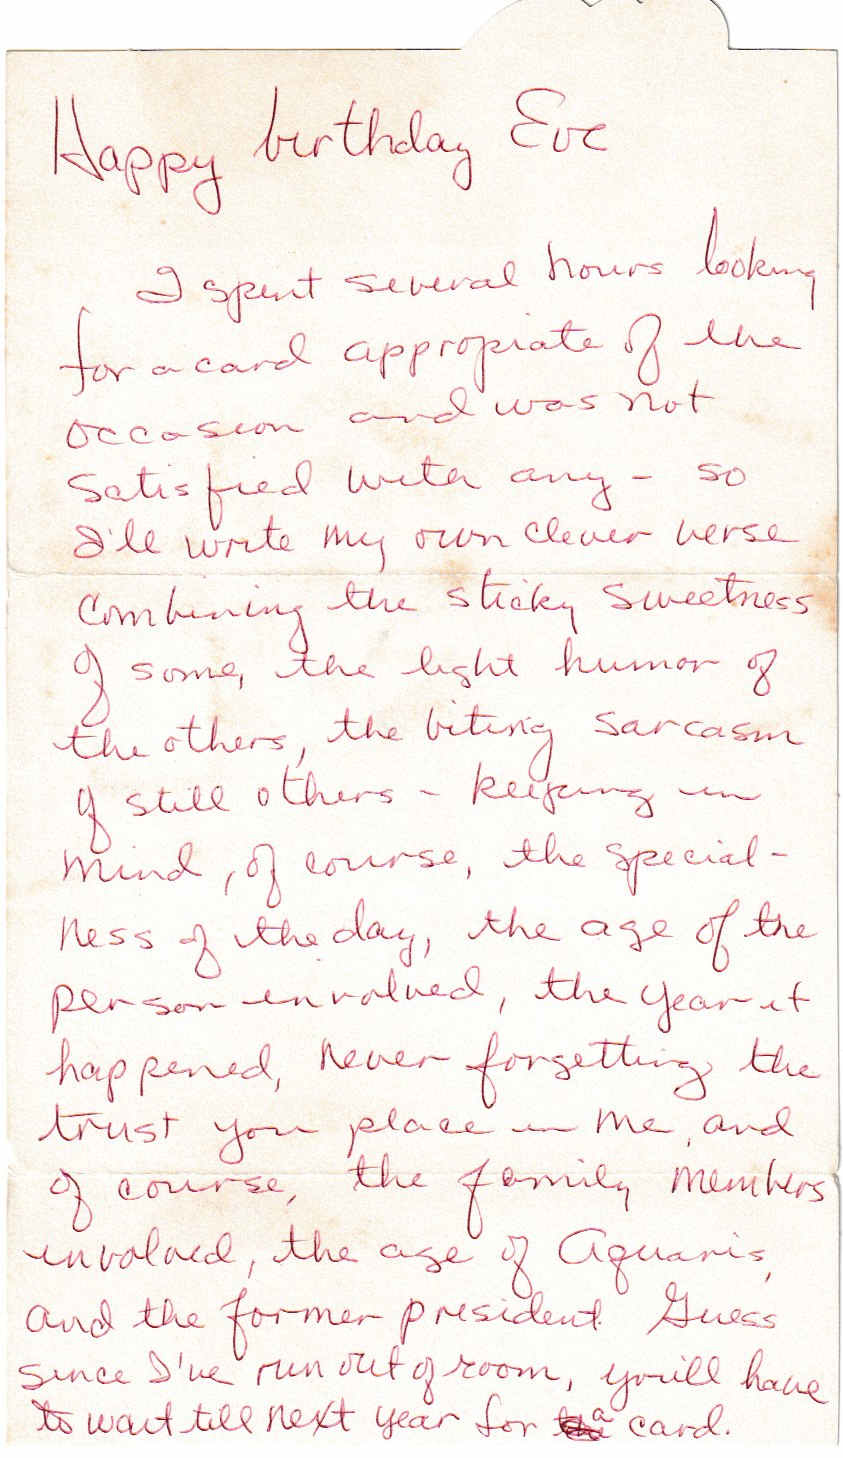 Happy birthday Eve
I spent several hours looking
for a card appropiate of the
occasion and was not
satisfied with any - so
I'll write my own clever verse
combining the sticky sweetness
of some, the light humor of
the others, the biting sarcasm
of still others - keeping in
mind, of course, the special-
ness of the day, the age of the
person involved, the year it
happened, never forgetting the
trust you place in me, and
of course, the family members
involved, the age of Aquaris,
and the former president. Guess
since I've run out of room, you'll have
to wait till next year for a card.